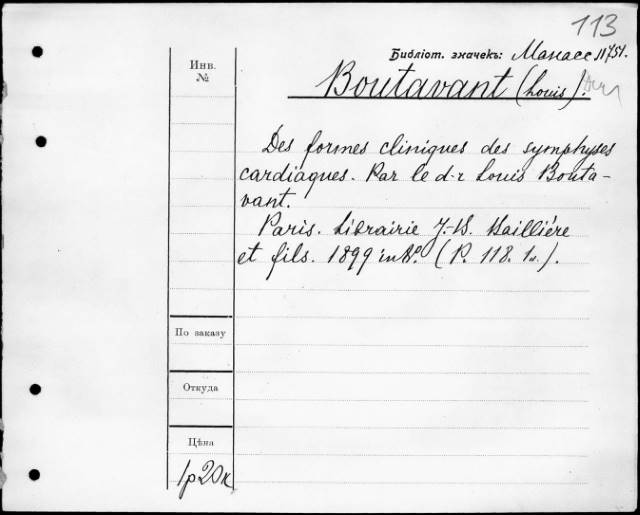 113
Библіот. значекъ: Манасс 11751.
Инв.
№
Boutavant (Louis).
Des formes cliniques des symphyses
cardiaques. Par le d-r Louis Bouta-
vant.
Paris. Librairie J.-B. Baillière
et fils. 1899 in 8°. (P. 118. 1 .).
По заказу
Откуда
Цѣна
1р 20к